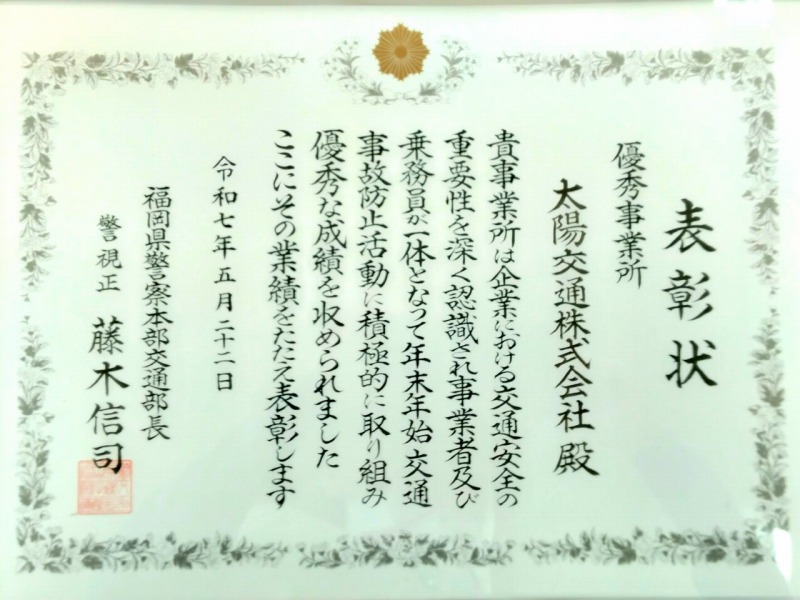 表彰状
優秀事業所
太陽交通株式会社 殿
貴事業所は企業における交通安全の
重要性を深く認識され事業者及び
乗務員が一体となって年末年始交通
事故防止活動に積極的に取り組み
優秀な成績を収められました
ここにその業績をたたえ表彰します
令和七年五月二十二日
福岡県警察本部交通部長
警視正 藤木信司